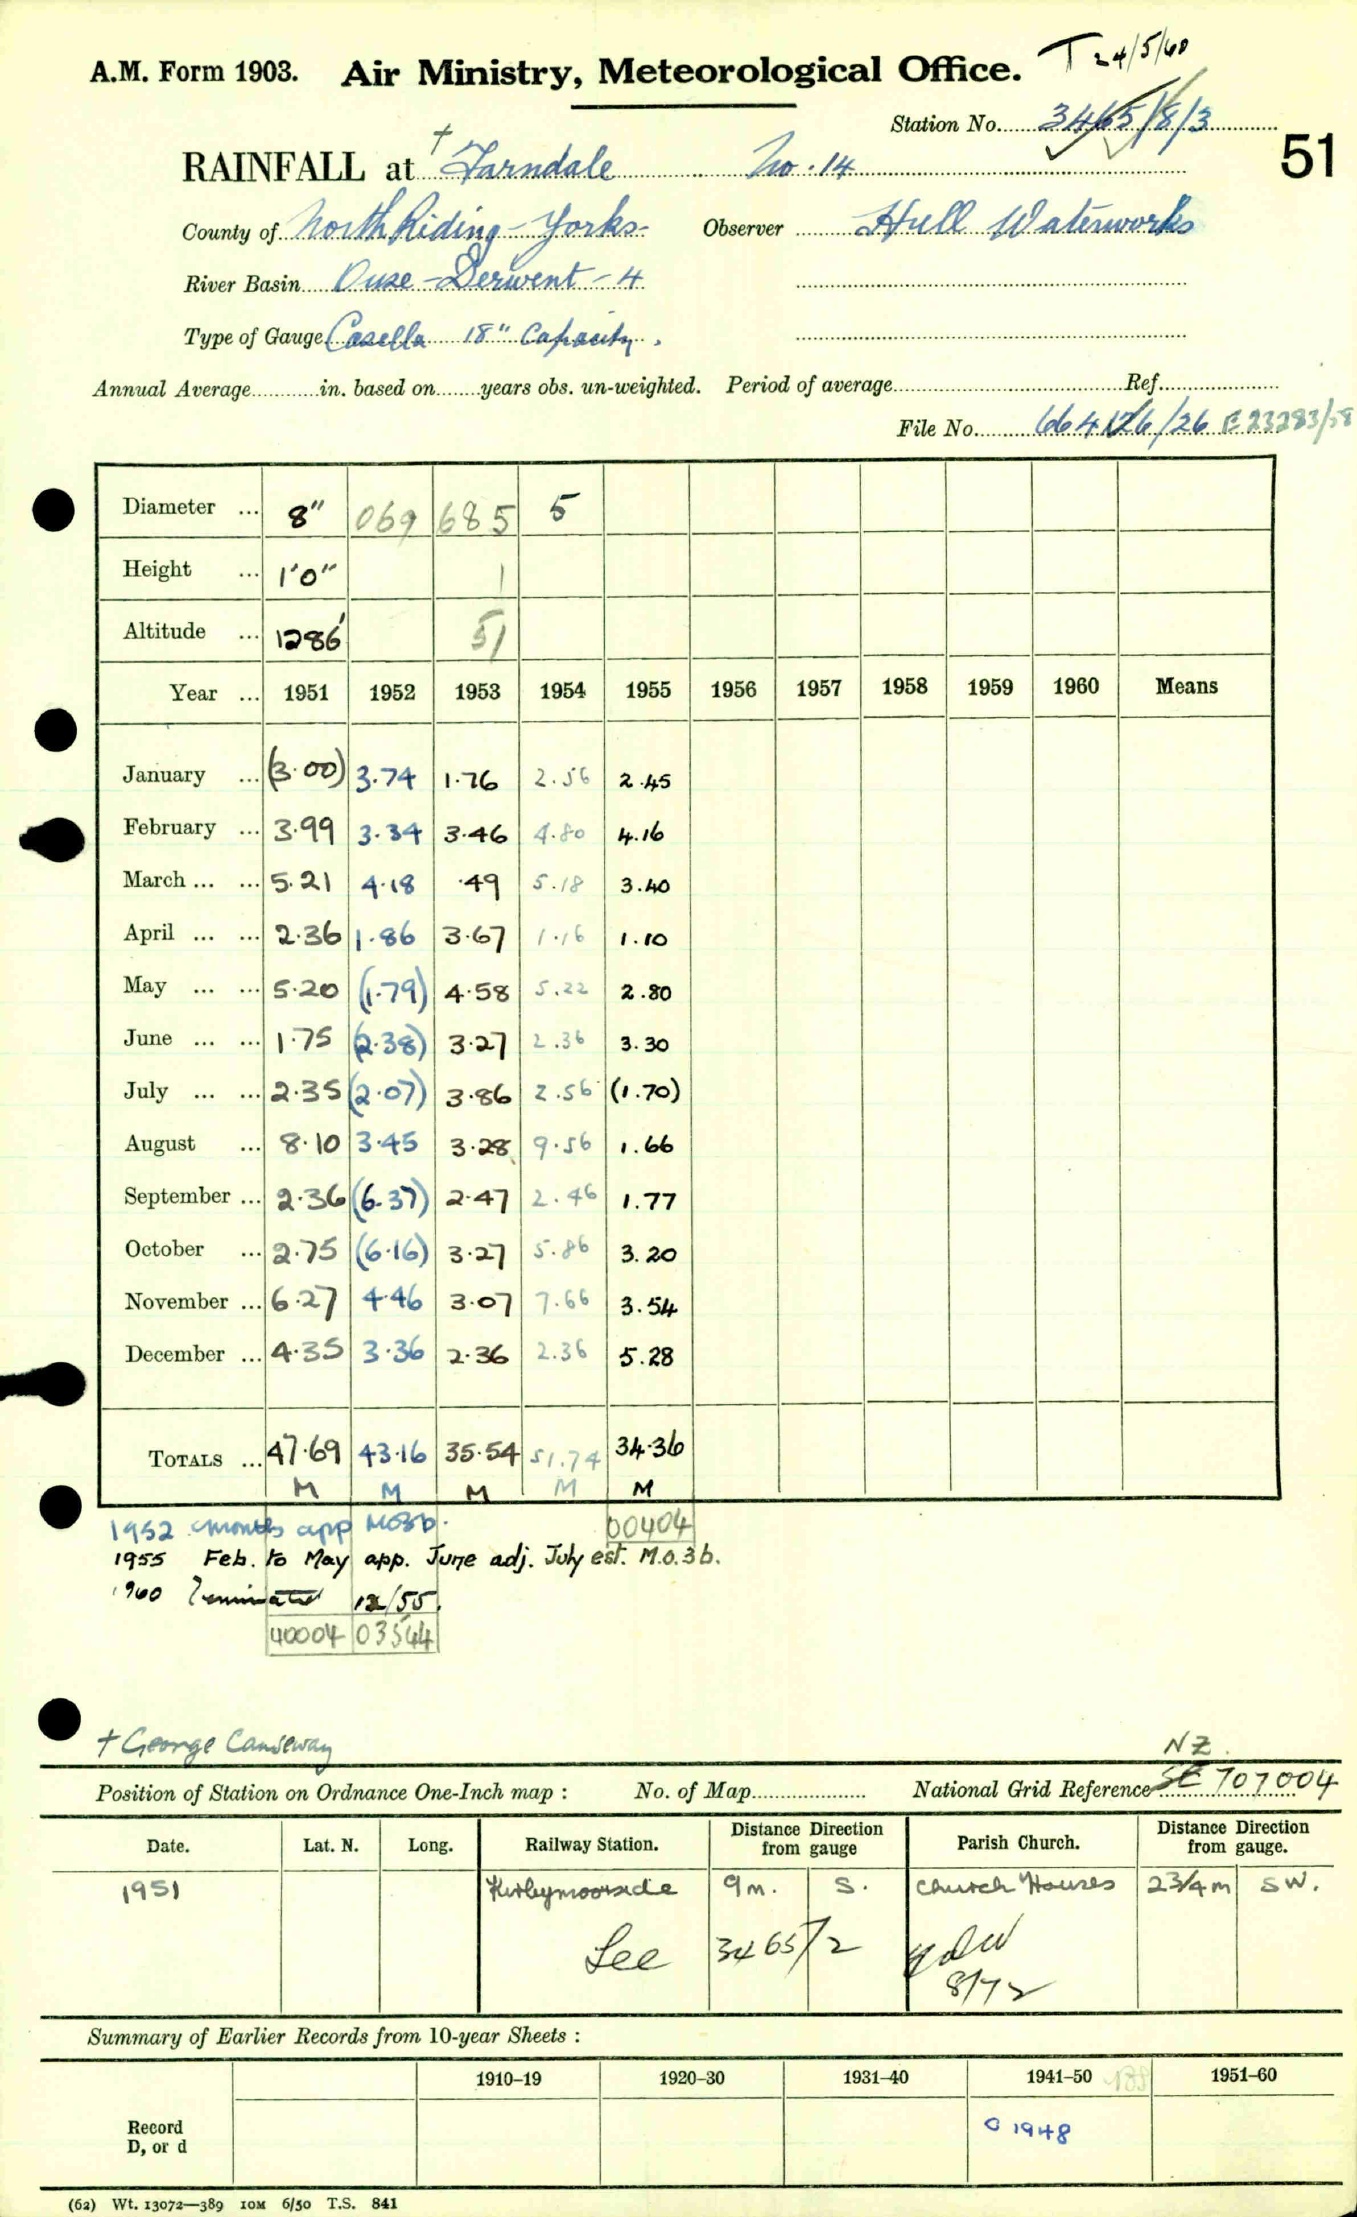 T 24/5/60
A.M. Form 1903. Air Ministry, Meteorological Office.
Station No. 3465/8/3
51
RAINFALL at † Farndale No. 14
County of North Riding - Yorks- Observer Hull Waterworks
River Basin Ouse - Derwent - 4
Type of Gauge Casella 18" Capacity.
Annual Average in. based on years obs. un-weighted. Period of average Ref.
File No. 664126/26 E 23283/58
Diameter ... 8" 069 685 5
Height ... 1'0" 1
Altitude ... 1286' 51
Year ... 1951 1952 1953 1954 1955 1956 1957 1958 1959 1960 Means
January ... (3.00) 3.74 1.76 2.56 2.45
February ... 3.99 3.34 3.46 4.80 4.16
March ... ... 5.21 4.18 .49 5.18 3.40
April ... ... 2.36 1.86 3.67 1.16 1.10
May ... ... 5.20 (1.79) 4.58 5.22 2.80
June ... ... 1.75 (2.38) 3.27 2.36 3.30
July ... ... 2.35 (2.07) 3.86 2.56 (1.70)
August ... 8.10 3.45 3.28 9.56 1.66
September ... 2.36 (6.37) 2.47 2.46 1.77
October ... 2.75 (6.16) 3.27 5.86 3.20
November ... 6.27 4.46 3.07 7.66 3.54
December ... 4.35 3.36 2.36 2.36 5.28
TOTALS ... 47.69 43.16 35.54 51.74 34.36
M M M M M
1952 months app MO3b. 00404
1955 Feb. to May app. June adj. July est. M.O.3b.
1960 Terminated 12/55.
40004 03544
† George Causeway
NZ
Position of Station on Ordnance One-Inch map : No. of Map National Grid Reference SE 707004
Date. Lat. N. Long. Railway Station. Distance Direction from gauge Parish Church. Distance Direction from gauge.
1951 Kirbymoorside 9m. S. Church Houses 2 3/4 m SW.
See 3465/2
8/72
Summary of Earlier Records from 10-year Sheets :
1910–19 1920–30 1931–40 1941–50 1951–60
Record
D, or d
C 1948
(62) Wt. 13072—389 10M 6/50 T.S. 841